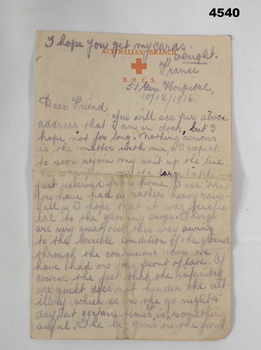 4540
I hope you get my cards
bought.
AUSTRALIAN BRANCH
France
B. R. C. S.
Gen Hospital,
10/12/1916.
Dear Friend
You will see per above
address that I am in dock, but I
hope not for long. Nothing serious
is the matter with me & I expect
to soon rejoin my unit up the line
just received from home. I see that
you have had a rather heavy rain
fall & I hope it was
to the growing crops. Things
are very quiet over this way owing
to the terrible condition of the ground
through the continuous rain we
have had on my front of late. Of
course the fact that the infantry
are quiet does not hinder the art
illery which is on the go night &
day, at certain times is something
awful. The big guns on the front